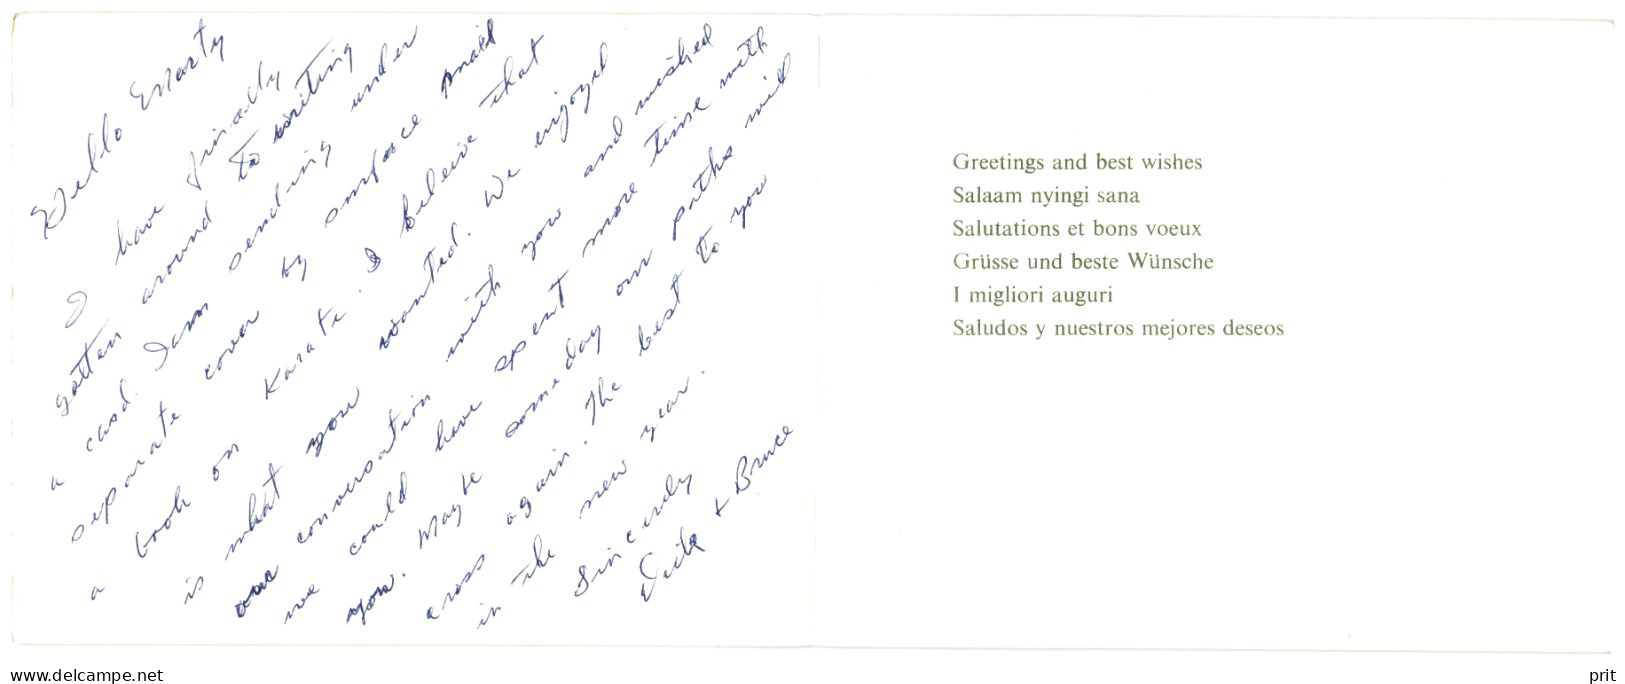 Hello Marty
I have finally
gotten around to writing
a card. I am sending under
separate cover by surface mail
a book on Karate. I beleive that
is what you wanted. We enjoyed
our conversation with you and wished
we could have spent more time with
you. Maybe someday our paths will
cross again. The best to you
in the new year.
Sincerely
& Bruce
Greetings and best wishes
Salaam nyingi sana
Salutations et bons voeux
Grüsse und beste Wünsche
I migliori auguri
Saludos y nuestros mejores deseos
www.delcampe.net
prit